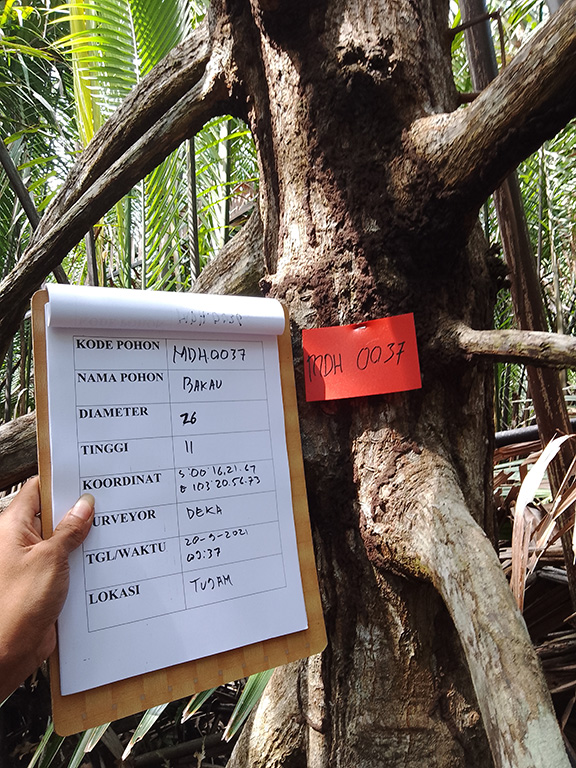 KODE POHON MDH0037
NAMA POHON BAKAU
DIAMETER 26
TINGGI 11
KOORDINAT S 00°16.21.67
E 103°20.56.73
SURVEYOR DEKA
TGL/WAKTU 20-9-2021
09:37
LOKASI TUJAM
MDH 0037